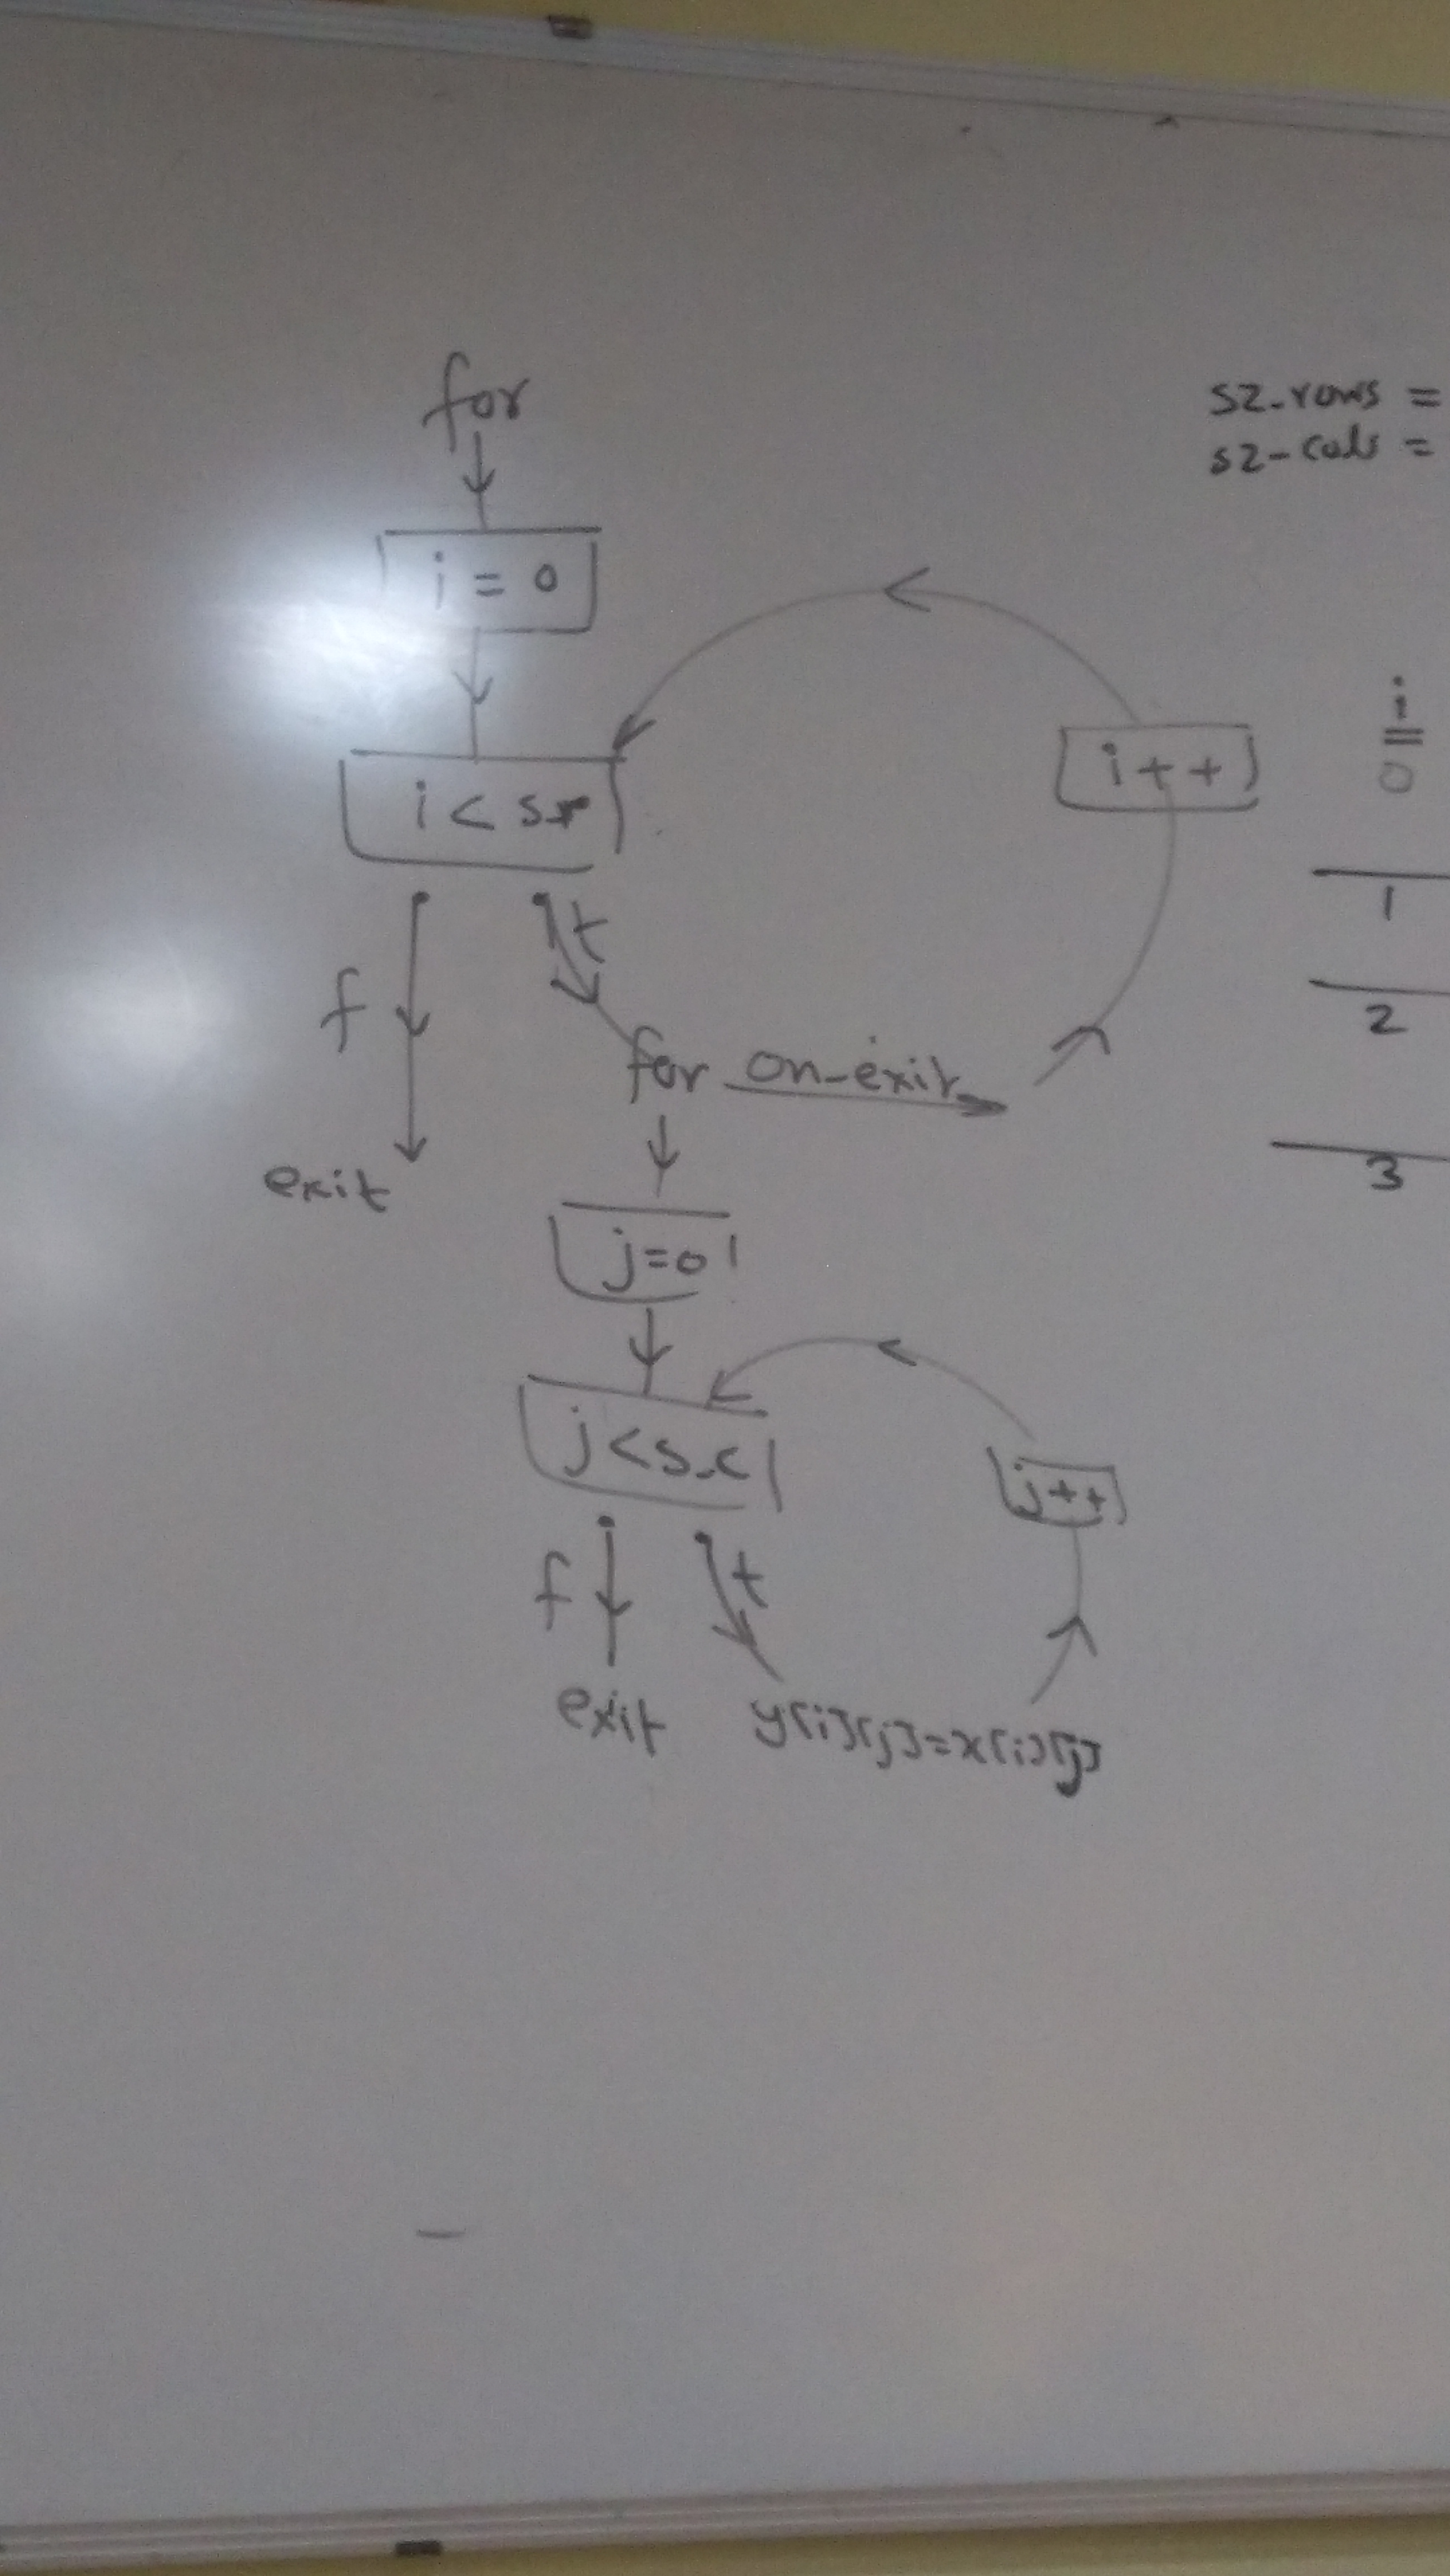 for
i = 0
i < s-r
i++
f
t
exit
for on-exit
j=0
j<s-c
j++
f
t
exit
y[i][j]=x[i][j]
sz-rows =
sz-cols =
i
0
1
2
3